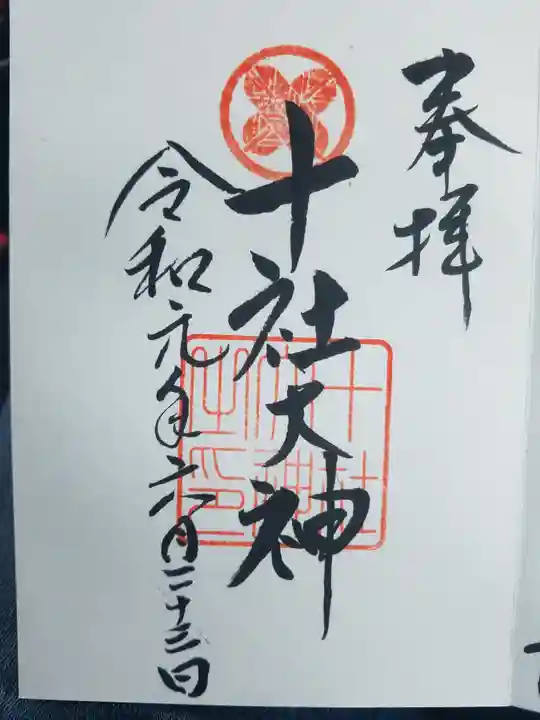 奉拝
十社大神
令和元年六月二十三日
十社大神之印